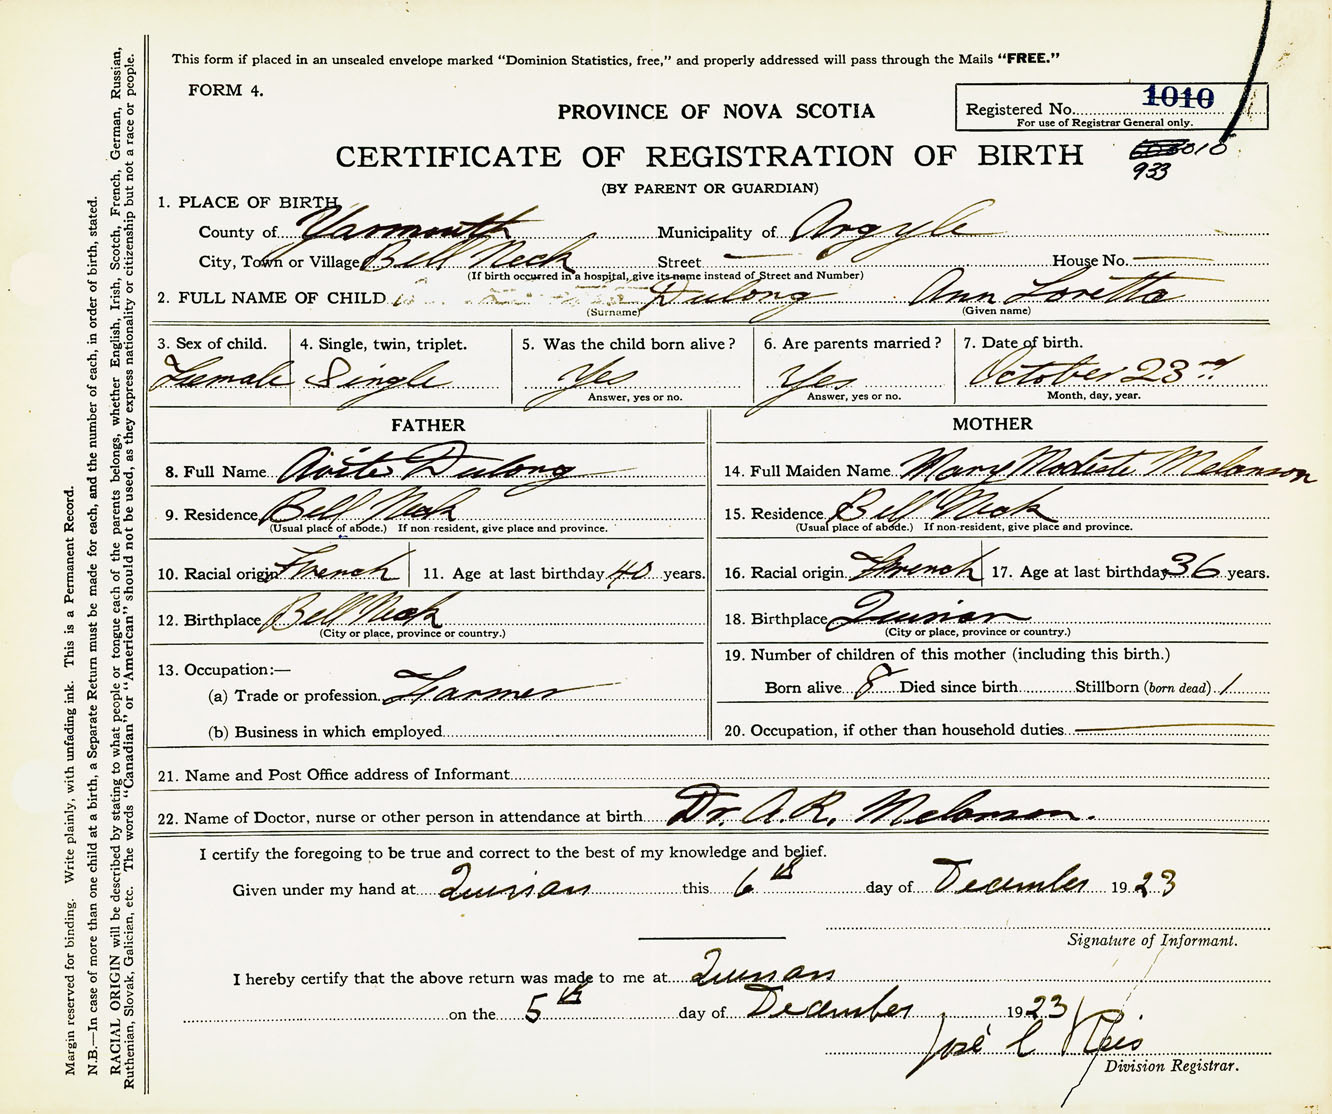 This form if placed in an unsealed envelope marked "Dominion Statistics, free," and properly addressed will pass through the Mails "FREE."
FORM 4.
PROVINCE OF NOVA SCOTIA
Registered No. 1010
For use of Registrar General only.
CERTIFICATE OF REGISTRATION OF BIRTH
933
(BY PARENT OR GUARDIAN)
1. PLACE OF BIRTH
County of Yarmouth Municipality of Argyle
City, Town or Village Bell Neck Street — House No. —
(If birth occurred in a hospital, give its name instead of Street and Number)
2. FULL NAME OF CHILD Dulong Ann Loretta
(Surname) (Given name)
3. Sex of child. 4. Single, twin, triplet. 5. Was the child born alive? 6. Are parents married? 7. Date of birth.
Female Single Yes Yes October 23rd
Answer, yes or no. Answer, yes or no. Month, day, year.
FATHER MOTHER
8. Full Name Avite Dulong 14. Full Maiden Name Mary Modeste Melanson
9. Residence Bell Neck 15. Residence Bell Neck
(Usual place of abode.) If non-resident, give place and province. (Usual place of abode.) If non-resident, give place and province.
10. Racial origin French 11. Age at last birthday 40 years. 16. Racial origin French 17. Age at last birthday 36 years.
12. Birthplace Bell Neck 18. Birthplace Quinan
(City or place, province or country.) (City or place, province or country.)
13. Occupation:— 19. Number of children of this mother (including this birth.)
(a) Trade or profession Farmer Born alive 8 Died since birth Stillborn (born dead) 1
(b) Business in which employed 20. Occupation, if other than household duties —
21. Name and Post Office address of Informant
22. Name of Doctor, nurse or other person in attendance at birth Dr. A. R. Melanson.
I certify the foregoing to be true and correct to the best of my knowledge and belief.
Given under my hand at Quinan this 6th day of December 1923
Signature of Informant.
I hereby certify that the above return was made to me at Quinan
on the 5th day of December 1923
José C
Division Registrar.
Margin reserved for binding. Write plainly, with unfading ink. This is a Permanent Record.
N.B.—In case of more than one child at a birth, a Separate Return must be made for each, and the number of each, in order of birth, stated.
RACIAL ORIGIN will be described by stating to what people or tongue each of the parents belongs, whether English, Irish, Scotch, French, German, Russian,
Ruthenian, Slovak, Galician, etc. The words "Canadian" or "American" should not be used, as they express nationality or citizenship but not a race or people.